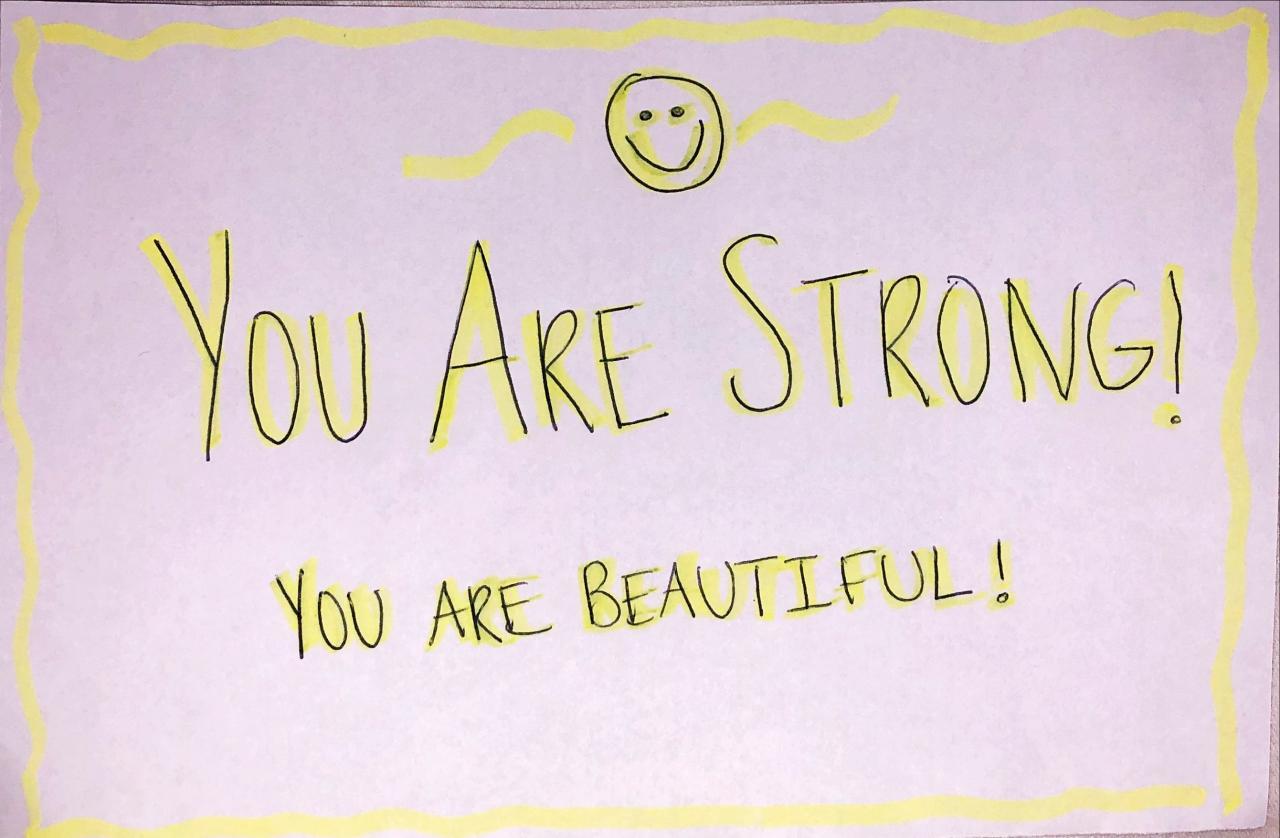 YOU ARE STRONG!
YOU ARE BEAUTIFUL!